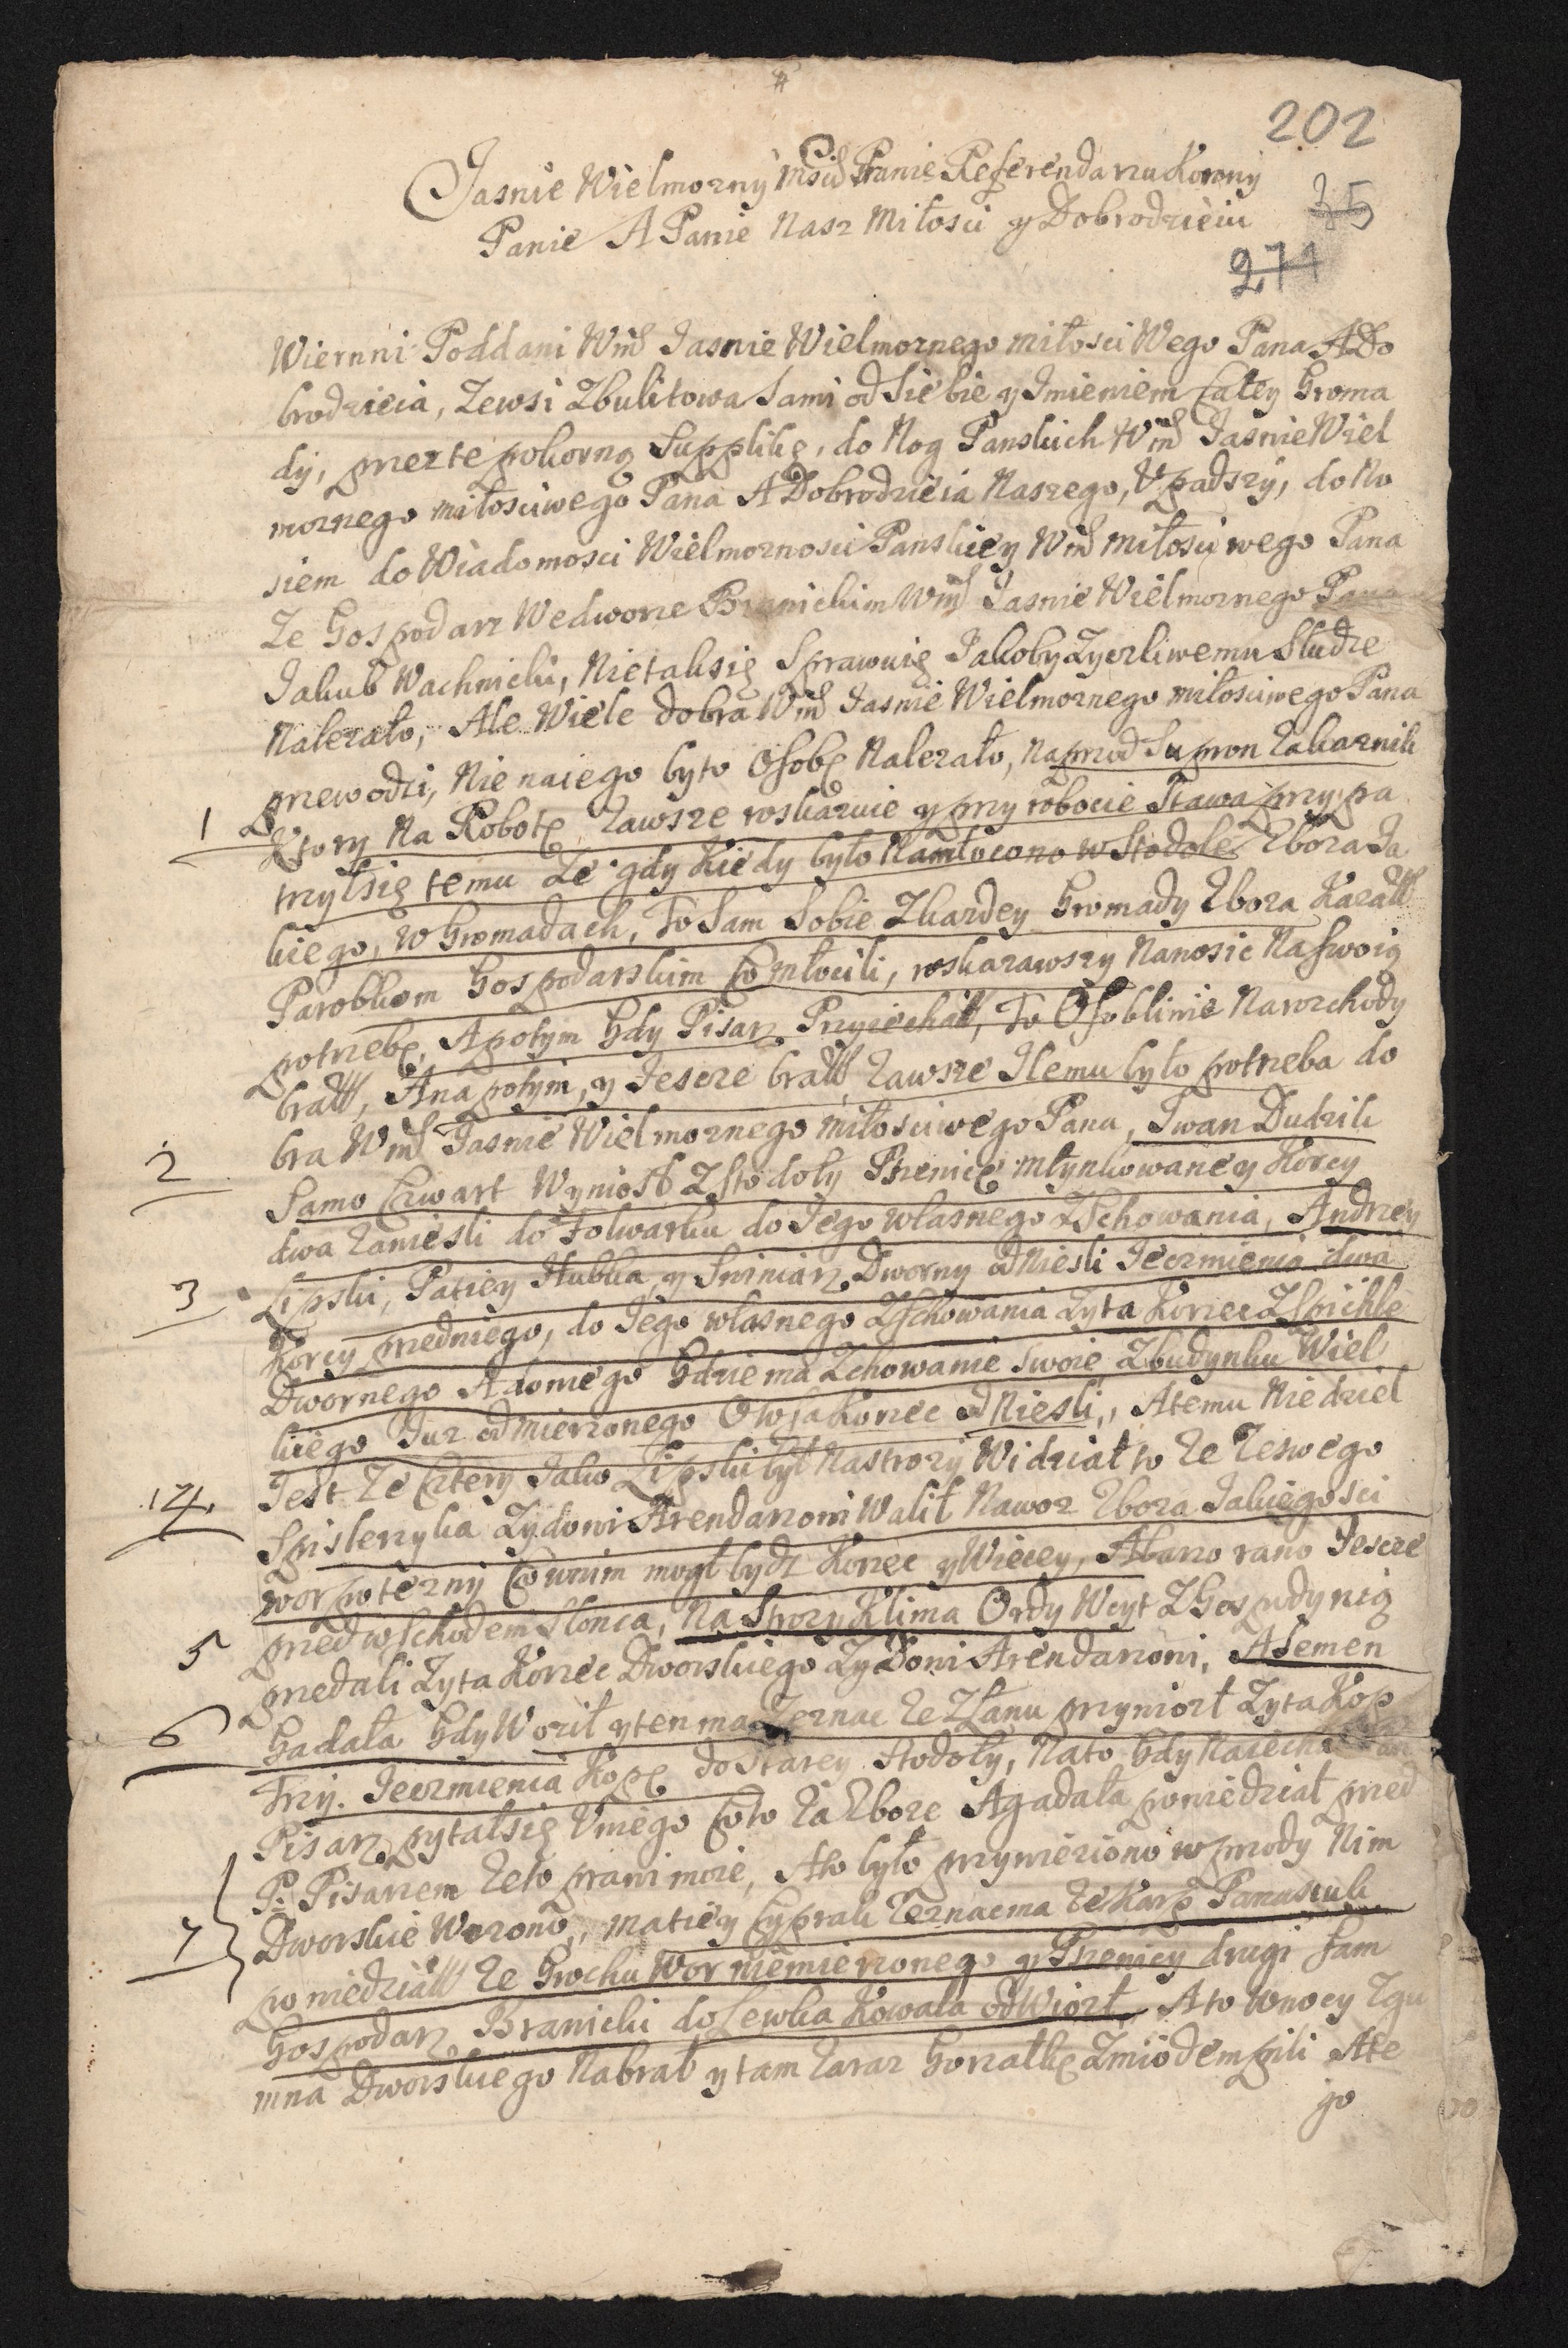 202
Jasnie Wielmozny Mśći Panie Referendarzu Koronny
Panie A Panie Nasz Miłosci y Dobrodzieiu
35
271
Wiernni Poddani Wmć Jasnie Wielmoznego miłosciWego Pana ADo
brodzieia, Zewsi Zbulitowa Sami od Siebie y Jmieniem Całey Groma
dy, przez te pokorną Supplikę, do Nog Panskich Wmć Jasnie Wiel
moznego miłosciwego Pana A Dobrodzieia Naszego, Upadszy, do No
siem do Wiadomosci Wielmoznosci Panskiey Wmć Miłosci wego Pana
Ze Gospodarz Wedworze Branickim Wmć Jasnie Wielmoznego Pana
Jakub Wachnicki, Nietaksię Sprawuię Jakoby Zyczliwemu Słudze
Nalezało, Ale Wiele dobra Wmć Jasnie Wielmoznego miłosciwego Pana
przewodzi, Nie naiego byto Osobę Nalezało, Naprzod Supron Zakaznik
1 Ktory Na Robotę Zawsze roskazuie y przy robocie Stawa przypa
trzyłsię temu Ze gdy Kiedy było Namłocono w Stodole Zboza Ja
kiego, w Gromadach, To Sam Sobie Zkazdey Gromady Zboza Kazałł
Parobkom Gospodarskim Co młocili, roskazawszy Nanosic Na Swoią
potrzebę, A potym Gdy Pisarz Przyiechałł, To Osobliwie Narozchody
brałł, Ana potym, y Jescze brałł Zawsze Ilemu było potrzeba do
bra Wmć Jasnie Wielmoznego miłosciwego Pana, Iwan Dudzik
2 Samo Czwart Wyniosł Zstodoły Pszenicę młynkowaney Korcy
dwa Zaniesli do Folwarku do Jego własnego Zschowania, Andrzey
3 Lipski, Patiey Hubka y Swiniarz Dworny odniesli Jęczmienia dwa
Korcy przedniego, do Jego własnego Zschowania Zyta Korzec Zspichle
Dwornego Adomego Gdzie ma Zchowanie swoie Zbudynku Wiel
kiego Juz odmierzonego Owsa Korzec od Niesli, Atemu Niedziel
4 Jest Ze Cztery Jako Lipski był Nastrozy Widział to Ze Zeswego
Spislerzyka Zydowi Arendarzowi Walił Nawoz Zboza Jakiegosci
wor potezny Co wnim mogł bydz Korzec y Wiecey, Abarzo rano Jescze
przed wschodem Slonca, Na Strozy Klima Ordy Woyt ZGospodynią
5 przedali Zyta Korzec Dworskiego Zydowi Arendarzowi, ASemen
6 Gadała Gdy Woził yten ma Zeznac Ze Złanu przyniozł Zyta Kop
Trzy. Jęczmienia Kopę do Starey Stodoły, Nato Gdy Naiechał Pan
Pisarz pytałsię Uniego Coto Za Zboze Agadała powiedział przed
P. Pisarzem Zeto prawi moie, Ato było przywieziono wprzody Nim
7 Dworskie Wozono, Matiey Cyprak Zeznacma Ze Karp Panasiuk
powiedziałł Ze Grochu Wor niemierzonego y Pszenicy drugi Sam
Gospodarz Branicki do Lewka Kowala odwiozł, Ato Wnocy Zgu
mna Dworskiego Nabrał ytam Zaraz Gorzałkę Zmiodem pili Ate
go